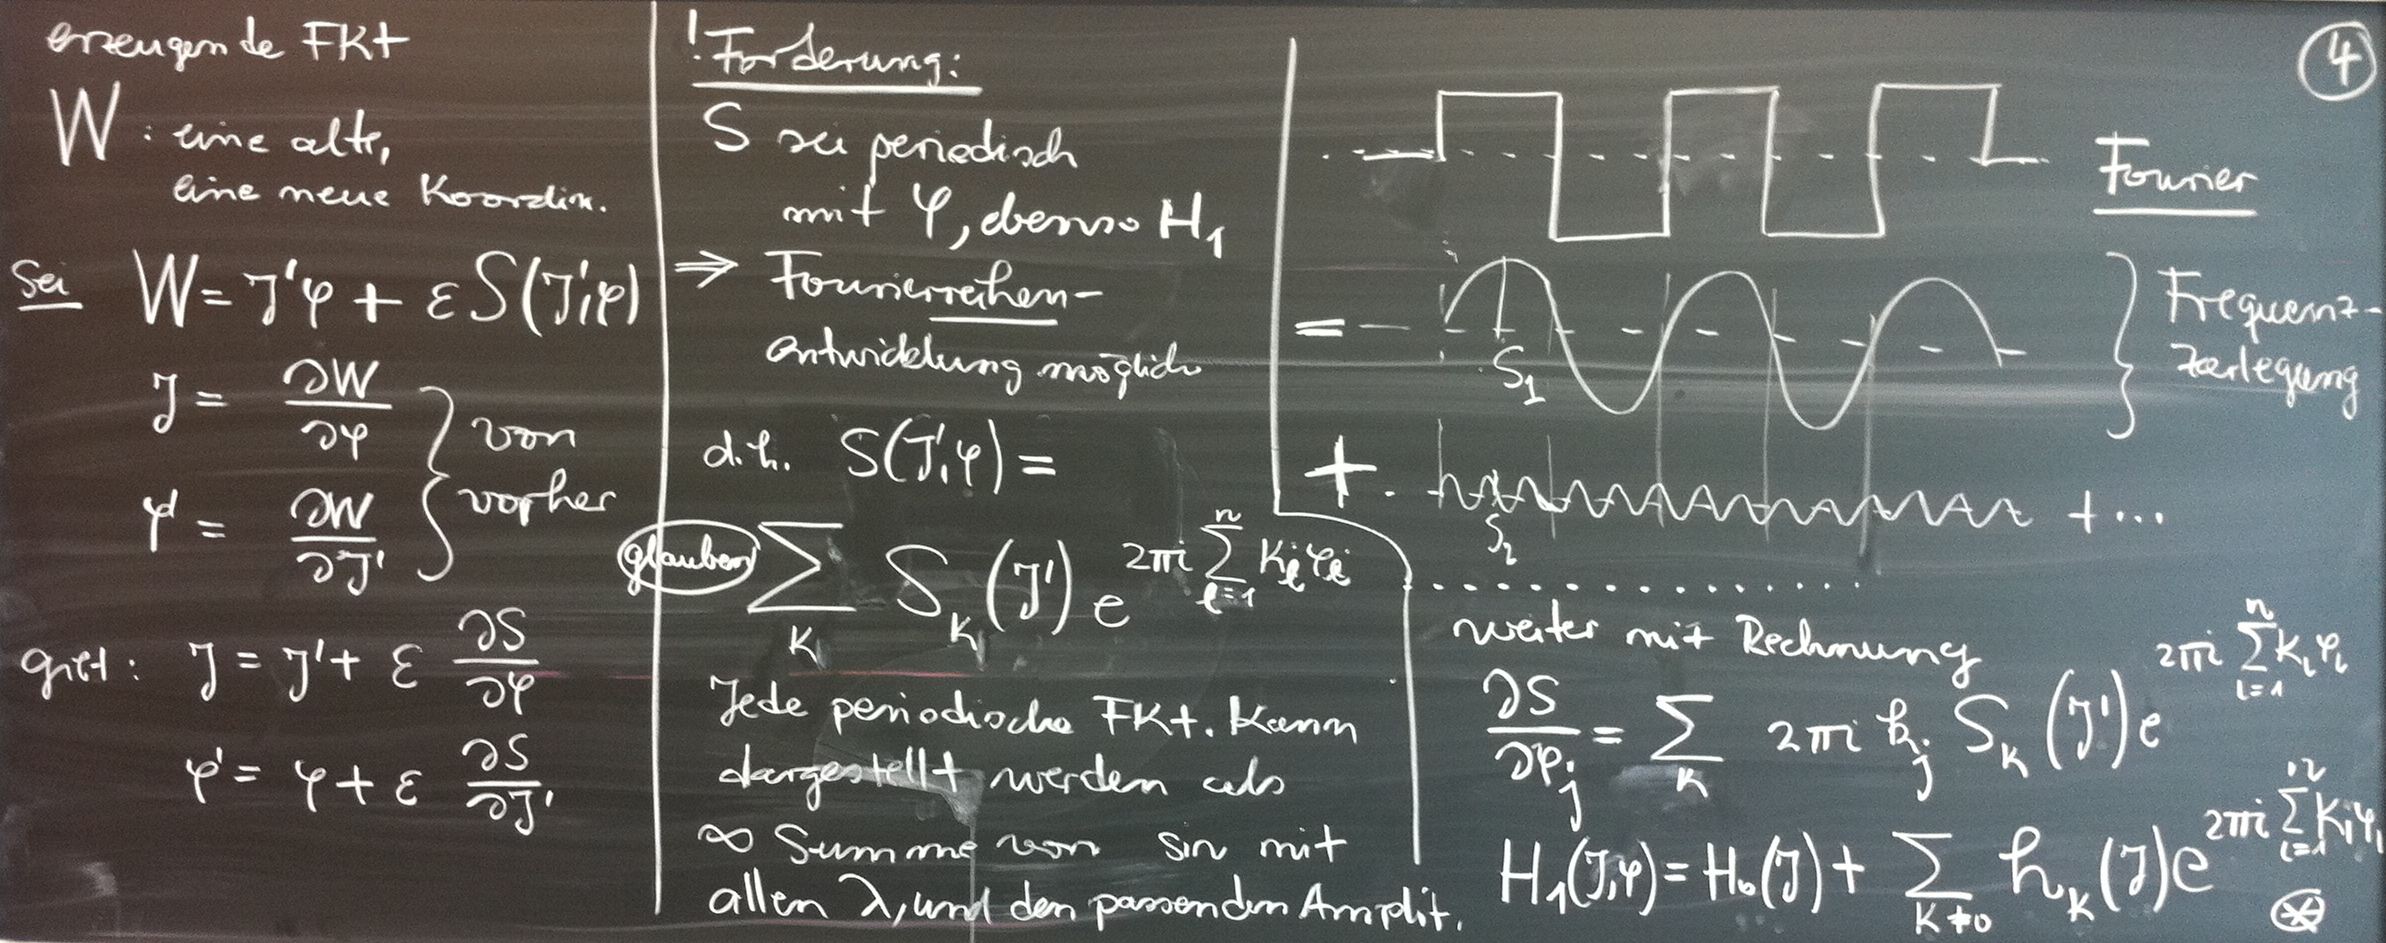 erzeugende FKt
W : eine alte,
eine neue Koordin.
Sei W = J'φ + εS(J',φ)
J = ∂W/∂φ
φ' = ∂W/∂J'
} von
vorher
gilt: J = J' + ε ∂S/∂φ
φ' = φ + ε ∂S/∂J'
! Forderung:
S sei periodisch
mit φ, ebenso H₁
⇒ Fourierreihen-
entwicklung möglich
d.h. S(J',φ) =
glauben ∑_K S_K(J') e^{2πi ∑_{l=1}^{n} K_l φ_l}
Jede periodische FKt. kann
dargestellt werden als
∞ Summe von sin mit
allen λ, und den passenden Amplit.
4
Fourier
= S₁
} Frequenz-
zerlegung
+ S₂ + ...
weiter mit Rechnung
∂S/∂φ_j = ∑_K 2πi k_j S_K(J') e^{2πi ∑_{i=1}^{n} K_i φ_i}
H₁(J,φ) = H₀(J) + ∑_{K≠0} h_K(J) e^{2πi ∑_{i=1}^{n} K_i φ_i}
⊛